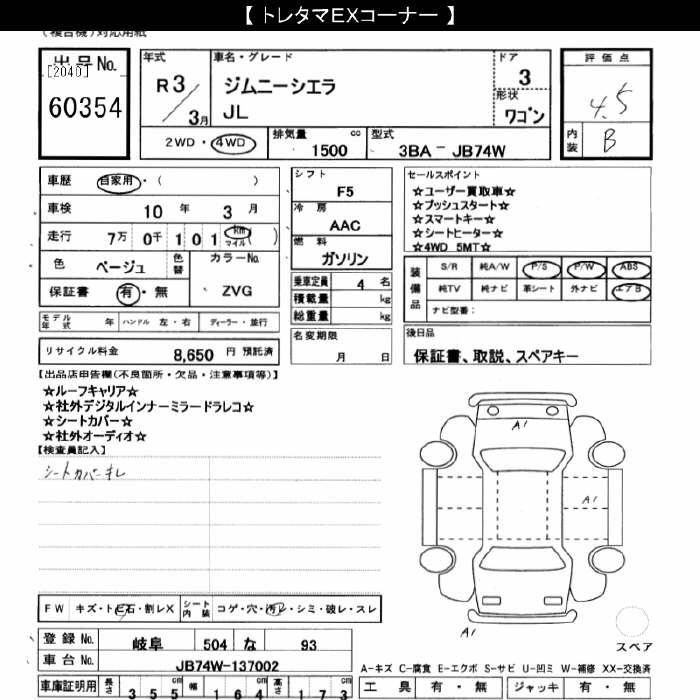 【 トレタマEXコーナー 】
(複合機)対応用紙
出品No. [2040] 60354
年式 R3/3月
車名・グレード ジムニーシエラ JL
ドア 3
形状 ワゴン
評価点 4.5
内装 B
2WD・4WD
排気量 cc 1500
型式 3BA - JB74W
車歴 自家用・( )
車検 10 年 3 月
走行 7万 0千 1 0 1 km マイル ( )
色 ベージュ 色替 カラーNo. ZVG
保証書 有・無
モデル年式 年 ハンドル 左・右 ディーラー・並行
リサイクル料金 8,650 円 預託済
シフト F5
冷房 AAC
燃料 ガソリン
乗車定員 4 名
積載量 kg
総重量 kg
名変期限 月 日
セールスポイント
☆ユーザー買取車☆
☆プッシュスタート☆
☆スマートキー☆
☆シートヒーター☆
☆4WD 5MT☆
装備品 S/R 純A/W P/S P/W ABS
純TV 純ナビ 革シート 外ナビ エアB
ナビ型番:
後日品
保証書、取説、スペアキー
【出品店申告欄(不良箇所・欠品・注意事項等)】
☆ルーフキャリア☆
☆社外デジタルインナーミラードラレコ☆
☆シートカバー☆
☆社外オーディオ☆
【検査員記入】
シートカバーキレ
A1
A1
A1
スペア
FW キズ・トビ石・割レX シート内装 コゲ・穴・汚レ・シミ・破レ・スレ
登録No. 岐阜 504 な 93
車台No. JB74W-137002
車庫証明用 長さ 355 cm 幅 164 cm 高さ 173 cm
A-キズ C-腐食 E-エクボ S-サビ U-凹ミ W-補修 XX-交換済
工具 有・無 ジャッキ 有・無